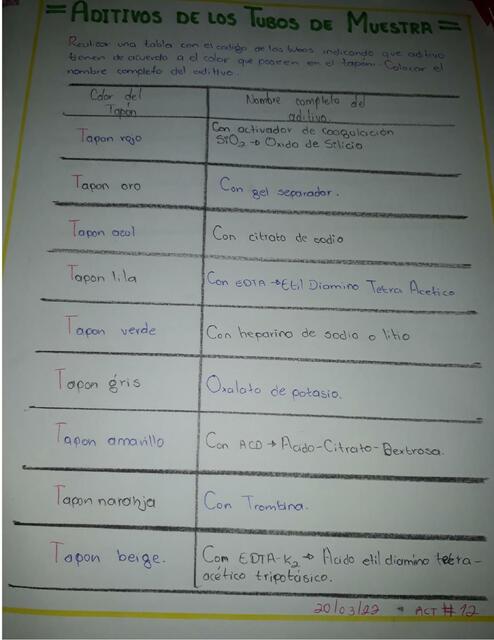 = ADITIVOS DE LOS TUBOS DE MUESTRA =
Realizar una tabla con el codigo de los tubos indicando que aditivo
tienen de acuerdo a el color que poseen en el tapón. Colocar el
nombre completo del aditivo.
Color del Tapón
Nombre completo del aditivo.
Tapon rojo
Con activador de coagulación
SiO2 → Oxido de Silicio
Tapon oro
Con gel separador.
Tapon azul
Con citrato de sodio
Tapon lila
Con EDTA → Etil Diamino Tetra Acetico
Tapon verde
Con heparina de sodio o litio
Tapon gris
Oxalato de potasio.
Tapon amarillo
Con ACD → Acido-Citrato-Dextrosa.
Tapon naranja
Con Trombina.
Tapon beige.
Con EDTA-K2 → Acido etil diamino tetra-
acético tripotásico.
20/03/22 * ACT # 12